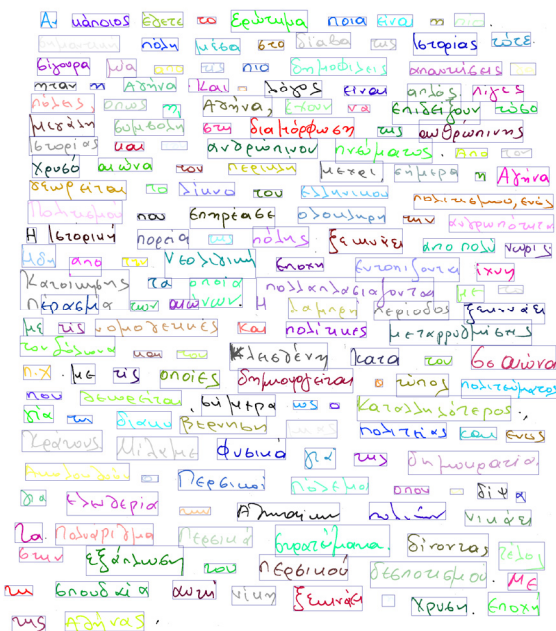 Αν κάποιος έθετε το ερώτημα ποια είναι η πιο
σημαντική πόλη μέσα στο διάβα της ιστορίας τότε
σίγουρα μία από τις πιο δημοφιλείς απαντήσεις
ήταν η Αθήνα. Και ο λόγος είναι απλός λίγες
πόλεις, όπως η Αθήνα, έχουν να επιδείξουν τόσο
μεγάλη συμβολή στη διαμόρφωση της ανθρώπινης
ιστορίας και ανθρώπινου πνεύματος. Από τον
χρυσό αιώνα του Περικλή μέχρι σήμερα η Αθήνα
θεωρείται το λίκνο του ελληνικού πολιτισμού, ενός
Πολιτισμού που επηρέασε ολόκληρη την ανθρωπότητα
Η Ιστορική πορεία της πόλης ξεκινάει από πολύ νωρίς
Ήδη από την Νεολιθική εποχή εντοπίζονται ίχνη
Κατοίκησης τα οποία πολλαπλασιάζονται με το
πέρασμα των αιώνων. Η λαμπρή περίοδος ξεκινάει
με τις νομοθετικές και πολιτικές μεταρρυθμίσεις
του Σόλωνα και του Κλεισθένη κατά τον 6ο αιώνα
π.χ. με τις οποίες δημιουργείται ο τύπος πολιτεύματος
που θεωρείται, σήμερα ως ο καταλληλότερος,
για τη διακυβέρνηση μιας πολιτείας και ενός
Κράτους Μιλάμε φυσικά για της δημοκρατία.
Ακολουθούν οι Περσικοί πόλεμοι όπου η δίψα
για ελευθερία των Αθηναίων πολιτών νικάει
τα πολυάριθμα Περσικά στρατεύματα. δίνοντας τέλος
στην εξάπλωση του περσικού δεσποτισμού. Με
τη σπουδαία αυτή νίκη ξεκινάει η Χρυσή Εποχή
της Αθήνας,